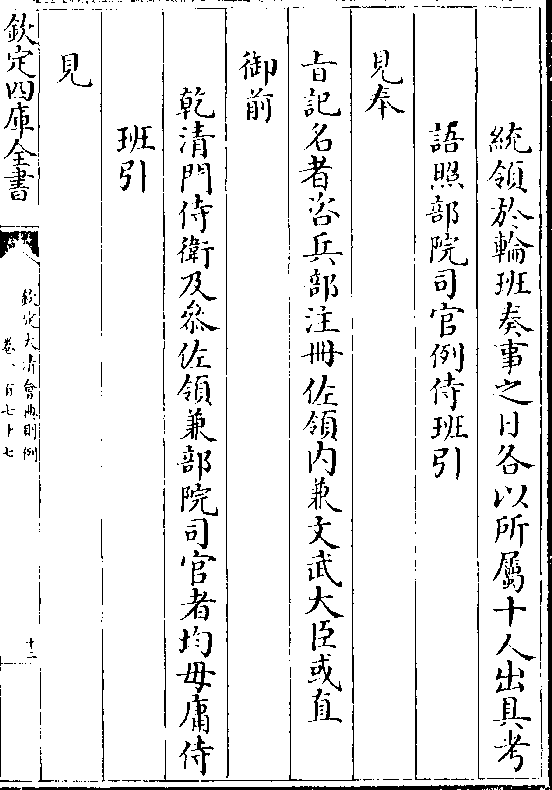 統領於輪班奏事之日各以所屬十人出具考
語照部院司官例侍班引
見奉
旨記名者咨兵部注冊佐領内兼文武大臣或直
御前
乾清門侍衛及叅佐領兼部院司官者均毋庸侍
班引
見
欽定四庫全書
欽定大清會典則例
卷一百七十七
十二